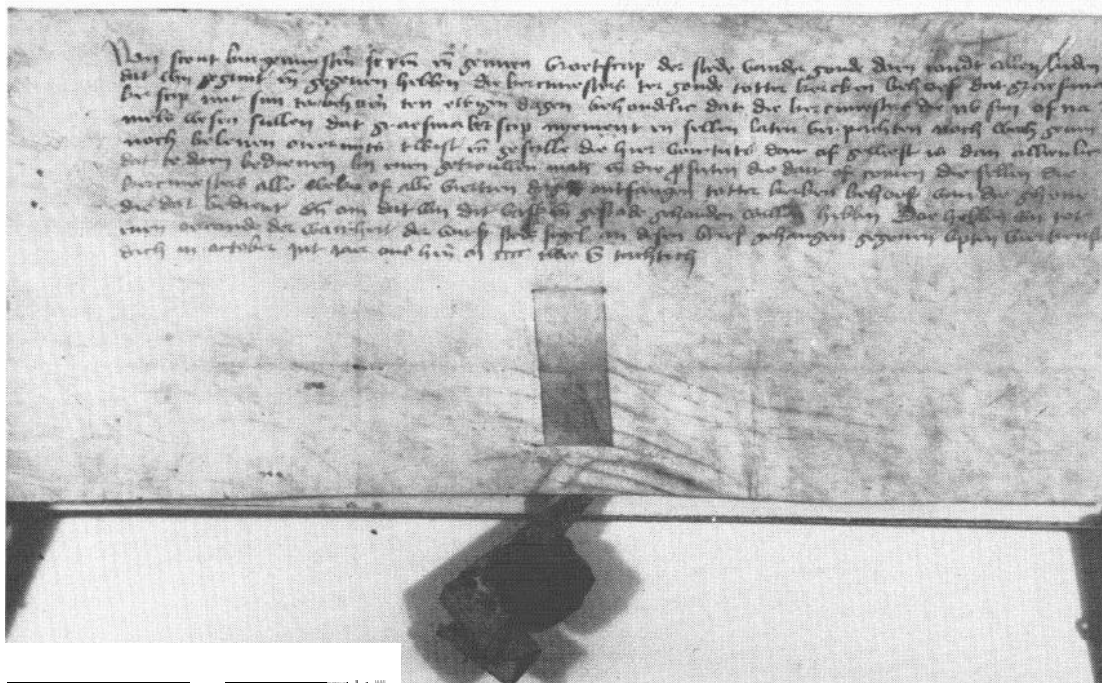 Wij scout burgemeistrē scepen eñ gemeen vroetscap der stede vander goude doen condt allen luden
dat wij gegunt eñ gegeven hebben die kercmeesters ter goude totter kercken behoef dat graefma
kerscap mit sijn toebehoren ten ewigen dagen behoudelic dat die kercmeesters die nu sijn of na
mels wesen sullen dat graefmakerscap nyement en sullen laten verpachten noch wech geven
noch belenen overmits twist eñ geschille die hier voirtijts dair of geweest is dan alleenlic
dat te doen bedienen bij enen getrouwen man eñ die profiten die dair of comen die sullen die
kercmeesters alle weke of alle viertien dagen ontfangen totter kercken behoef van die ghene
die dat bedient Eñ om dat wij dit vast eñ gestade gehouden willen hebben Soe hebben wij tot
enen oirconde der wairheit der voirs stede segel an desen brief gehangen gegeven upten viertiensten
dach in october int jair ons hrñ M cccc twee ñ tachtich